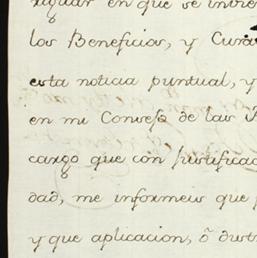 riguar en que se intre
los Beneficios, y Cura
esta noticia puntual, y
en mi Consejo de las
cargo que con justificac
dad, me informeis que
y que aplicacion, ô distr